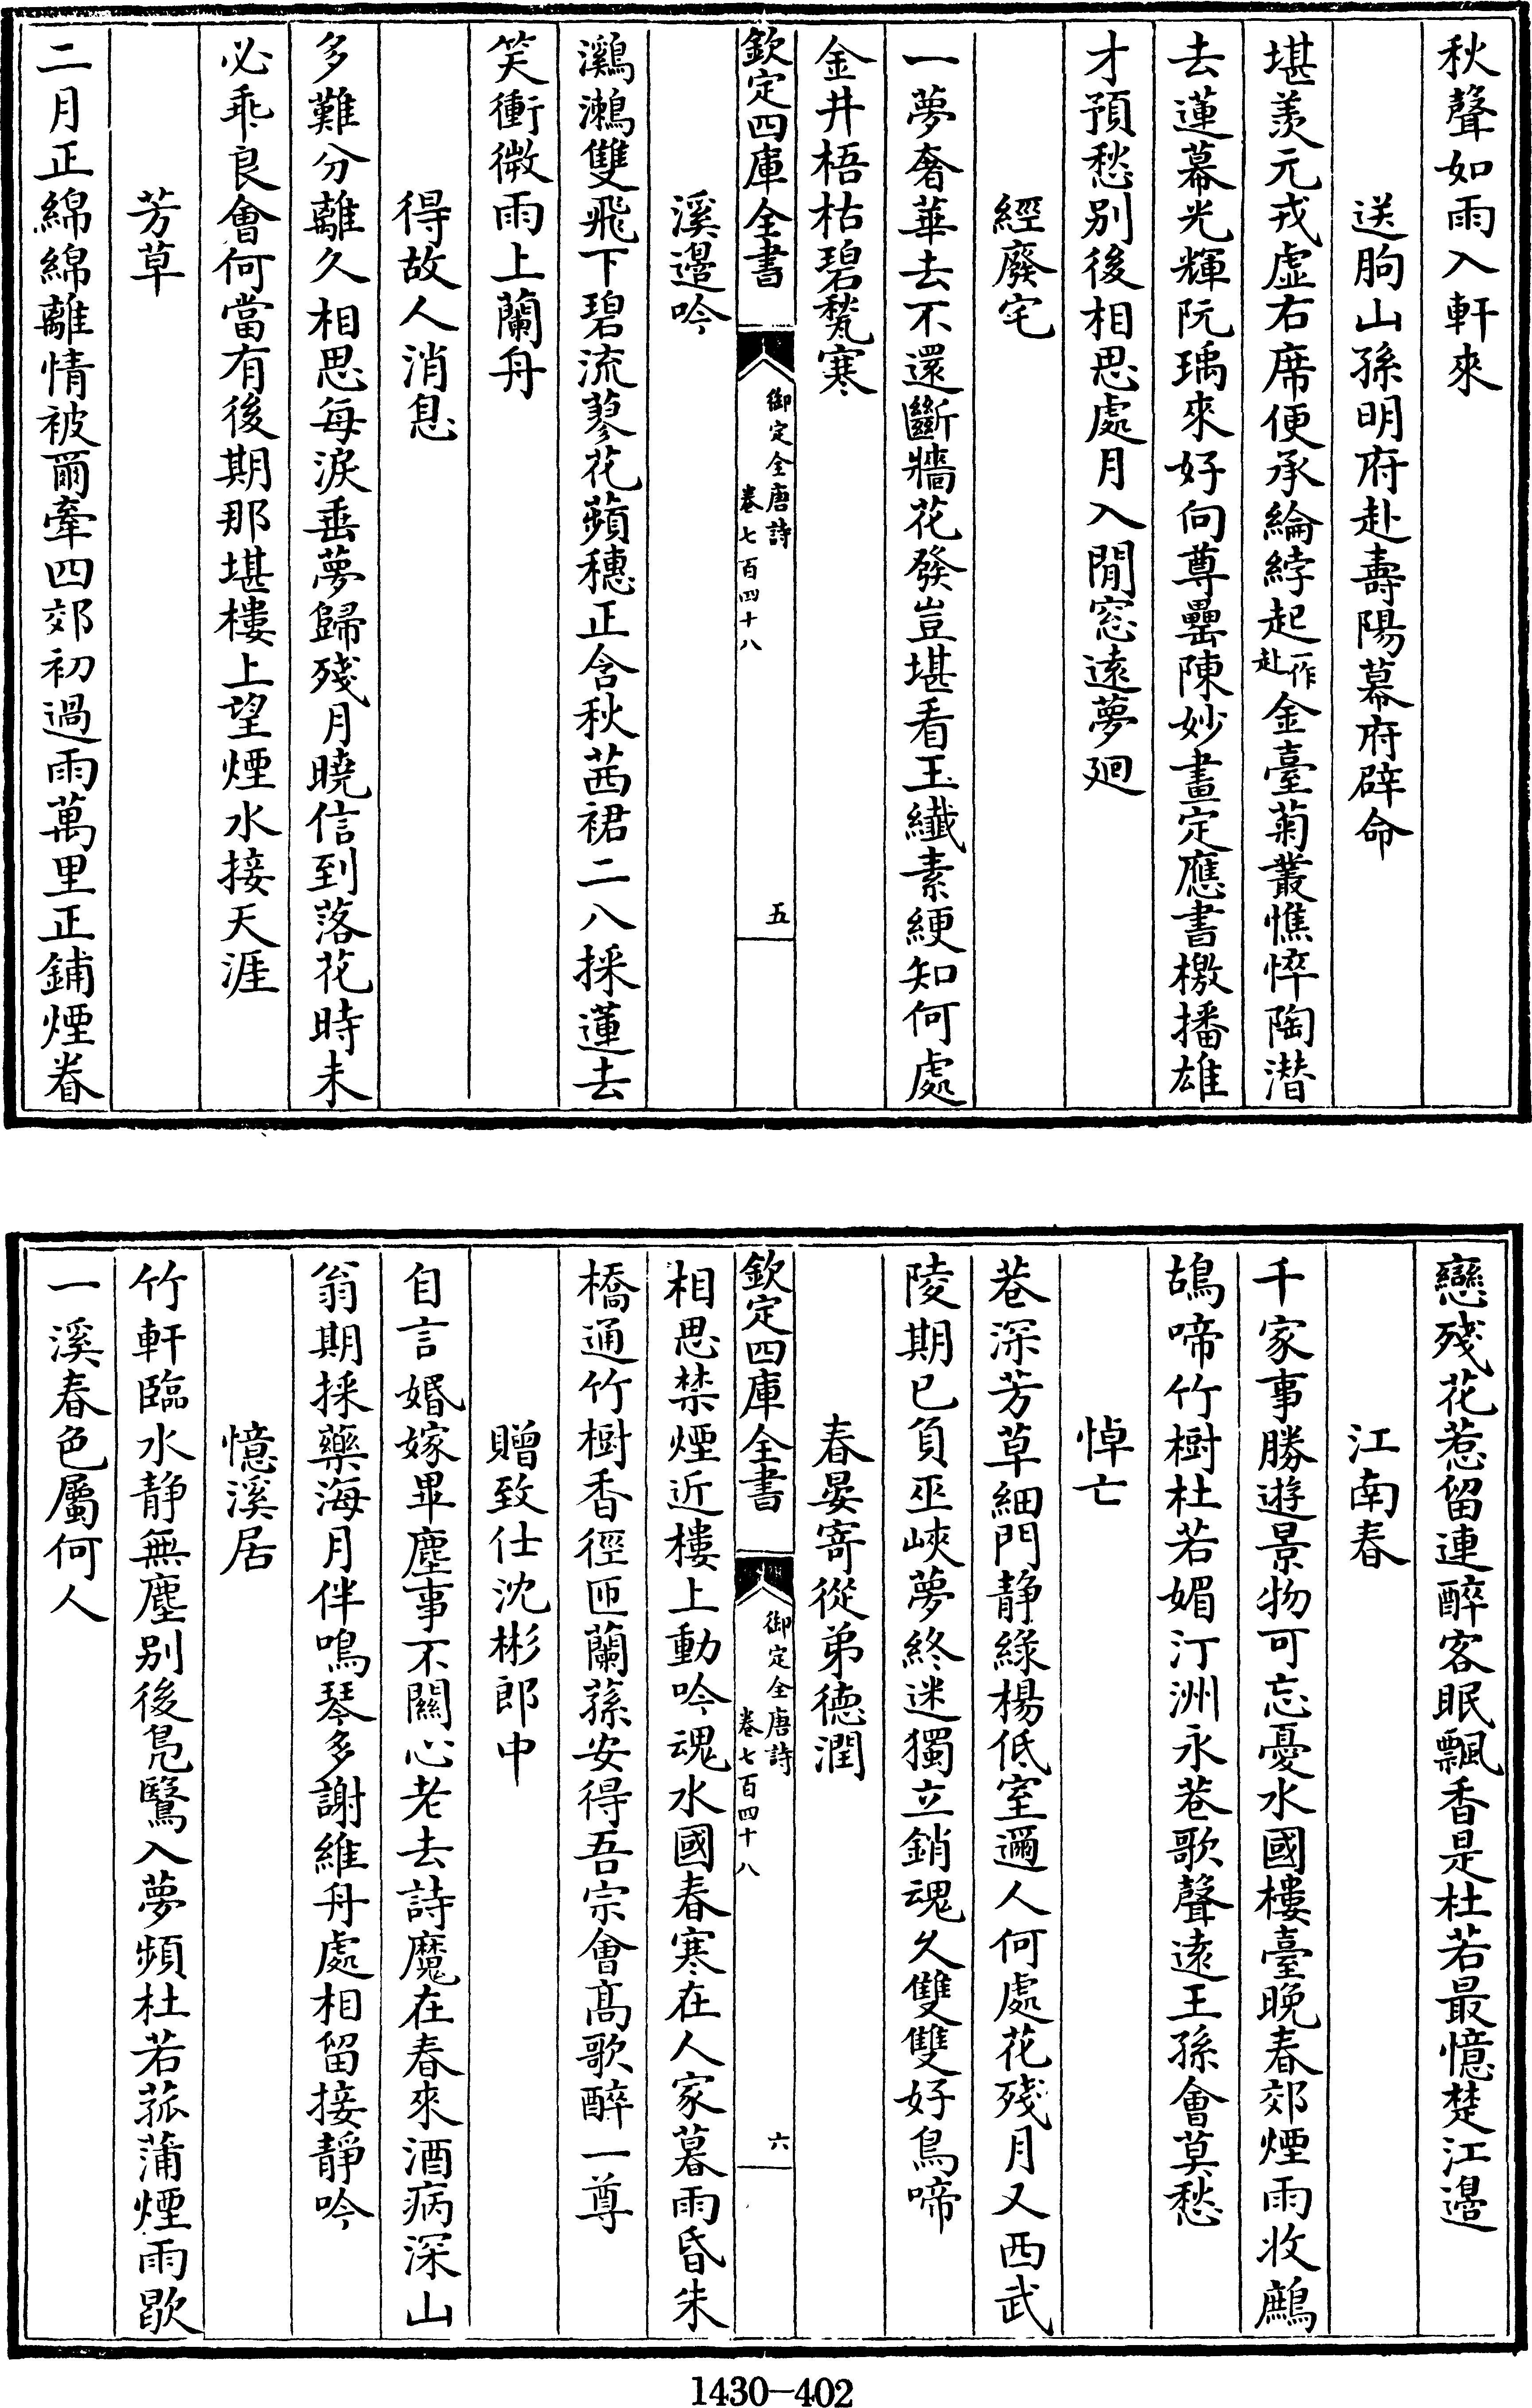 秋聲如雨入軒來
送朐山孫明府赴壽陽幕府辟命
堪羨元戎虚右席便承綸綍起一作赴金臺菊叢憔悴陶潛
去蓮幕光輝阮瑀來好向尊罍陳妙畫定應書檄播雄
才預愁别後相思處月入閒窓遠夢廻
經廢宅
一夢奢華去不還斷牆花發豈堪看玉纖素綆知何處
金井梧枯碧甃寒
欽定四庫全書
御定全唐詩
卷七百四十八
五
溪邉吟
鸂鷘雙飛下碧流蓼花蘋穗正含秋茜裙二八採蓮去
笑衝微雨上蘭舟
得故人消息
多難分離久相思每淚垂夢歸殘月曉信到落花時未
必乖良會何當有後期那堪樓上望煙水接天涯
芳草
二月正綿綿離情被爾牽四郊初過雨萬里正鋪煙眷
戀殘花惹留連醉客眠飄香是杜若最憶楚江邉
江南春
千家事勝遊景物可忘憂水國樓臺晚春郊煙雨收鷓
鴣啼竹樹杜若媚汀洲永巷歌聲遠王孫會莫愁
悼亡
巷深芳草細門静緑楊低室邇人何處花殘月又西武
陵期已負巫峽夢終迷獨立銷魂久雙雙好鳥啼
春晏寄從弟德潤
欽定四庫全書
御定全唐詩
卷七百四十八
六
相思禁煙近樓上動吟魂水國春寒在人家暮雨昏朱
橋通竹樹香徑匝蘭蓀安得吾宗會髙歌醉一尊
贈致仕沈彬郎中
自言婚嫁畢塵事不關心老去詩魔在春來酒病深山
翁期採藥海月伴鳴琴多謝維舟處相留接靜吟
憶溪居
竹軒臨水静無塵别後鳬鷖入夢頻杜若菰蒲煙雨歇
一溪春色屬何人
1430—402